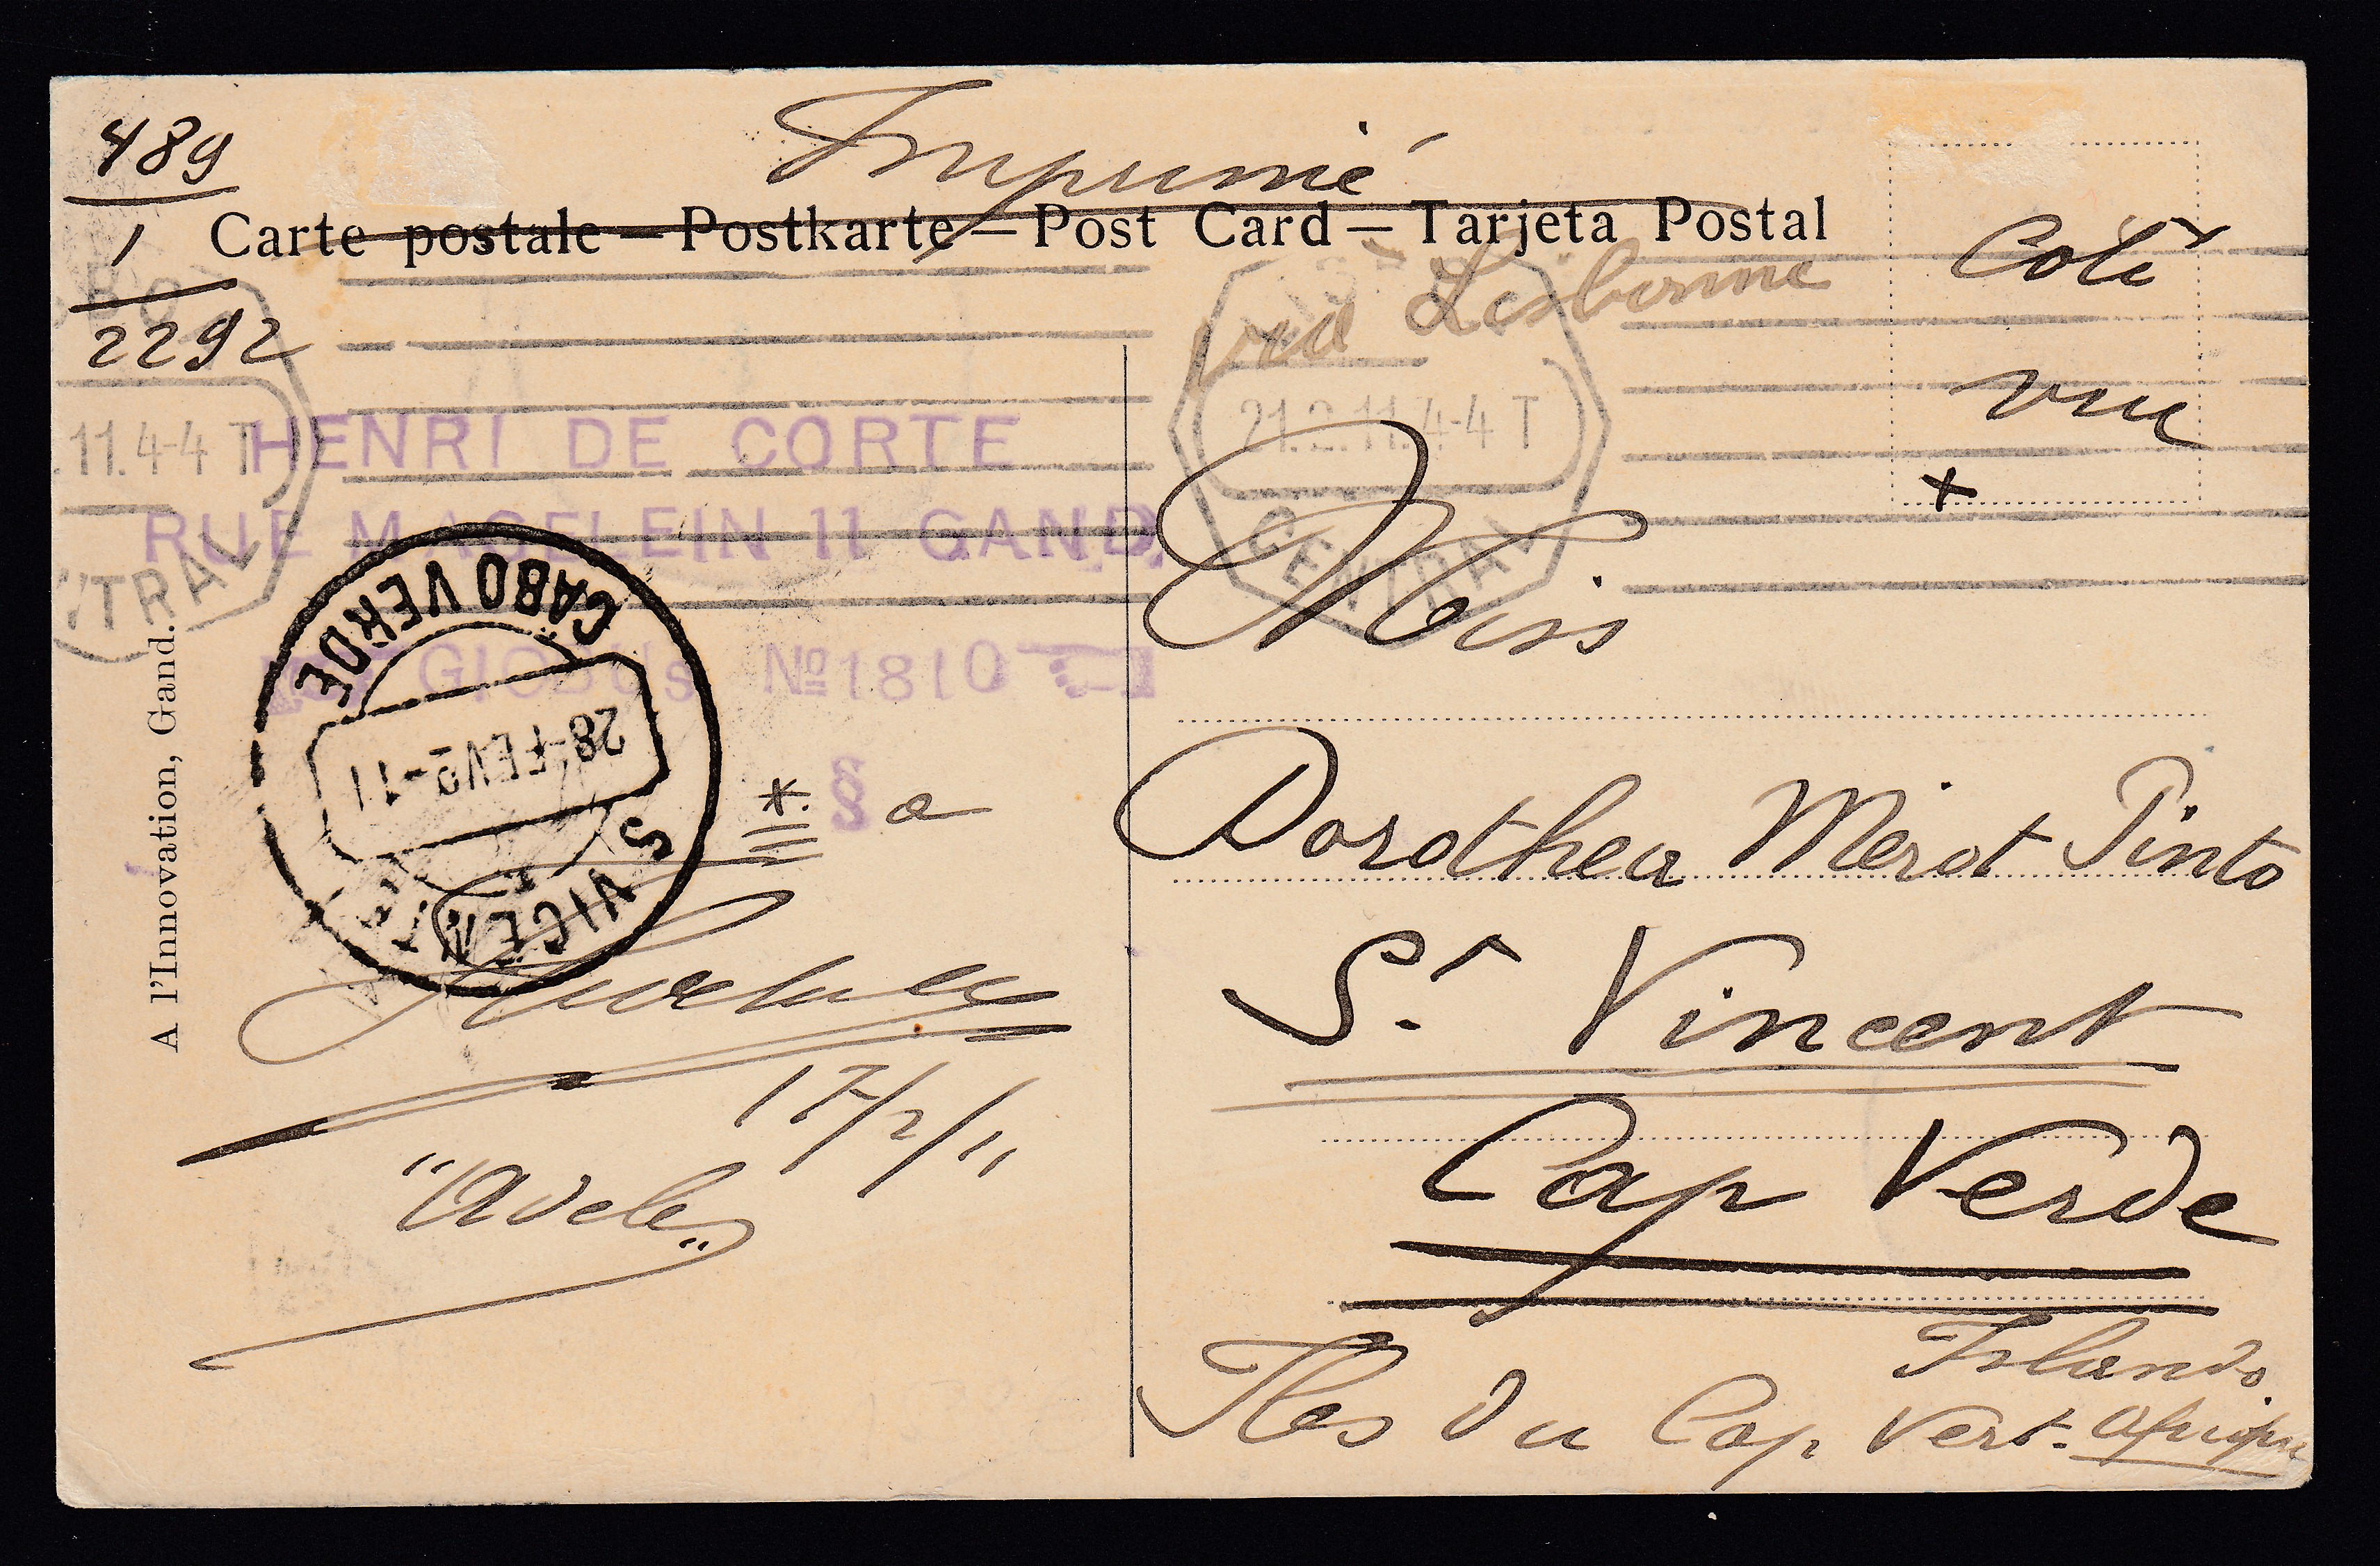 489
1
2292
Imprimé
Carte postale — Postkarte — Post Card — Tarjeta Postal
via Lisbonne
Coté
vue
x
LISBOA
21.2.11.4-4 T
CENTRAL
BOA
.11.4-4 T
NTRAL
HENRI DE CORTE
RUE MAGELEIN 11 GAND
GlOBUs Nº 1810
CABO VERDE
28-FEV-11
S VICENTE
§ a
17/2/11
"Adele"
A l'Innovation, Gand.
Miss
Dorothea Merot Pinto
St. Vincent
Cap Verde
Islands
Iles du Cap Vert. Afrique